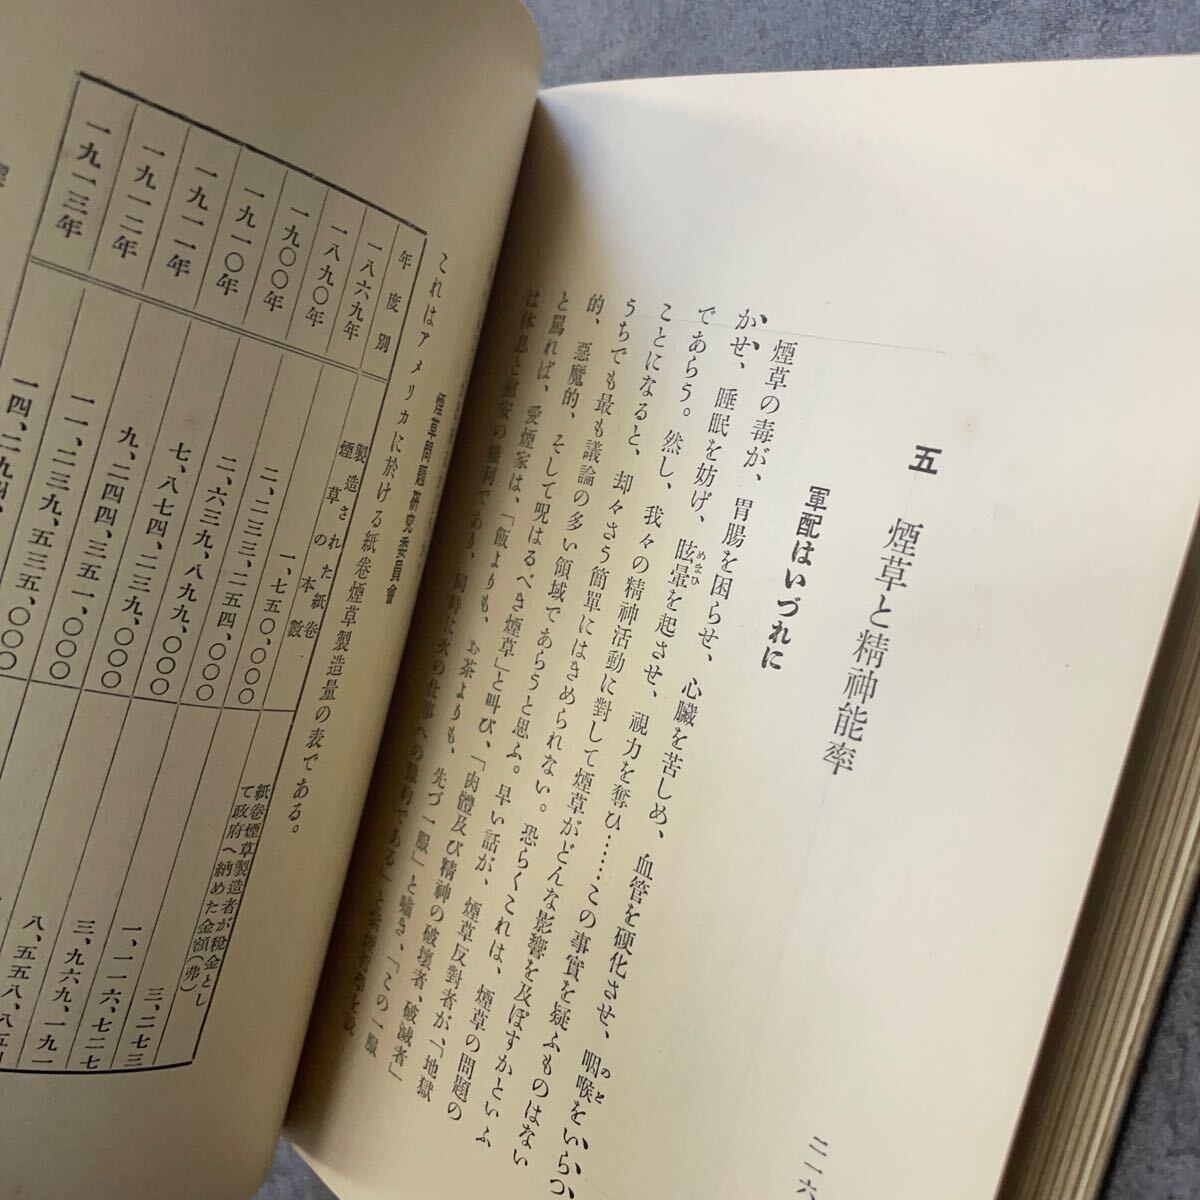 五　煙草と精神能率
軍配はいづれに
煙草の毒が、胃腸を困らせ、心臓を苦しめ、血管を硬化させ、咽喉をいらつ
のど
かせ、睡眠を妨げ、眩暈を起させ、視力を奪ひ……この事實を疑ふものはない
めまひ
であらう。然し、我々の精神活動に對して煙草がどんな影響を及ぼすかといふ
ことになると、却々さう簡單にはきめられない。恐らくこれは、煙草の問題の
うちでも最も議論の多い領域であらうと思ふ。早い話が、煙草反對者が、「地獄
的、惡魔的、そして呪はるべき煙草」と叫び、「肉體及び精神の破壞者、破滅者」
と罵れば、愛煙家は、「飯よりも、お茶よりも、先づ一服」と嘯き、「この一服
は休息と慰安の權利であり、同時に次の仕事への
二一六
煙草問題研究委員會
これはアメリカに於ける紙卷煙草製造量の表である。
年度別
製造された紙卷
煙草の本數
紙卷煙草製造者が税金とし
て政府へ納めた金額(弗)
一八六九年　一、七五〇、〇〇〇
一八九〇年　二、二三三、二五四、〇〇〇　一、一一六、七二七
一九〇〇年　二、六三九、八九九、〇〇〇　三、九六九、一九一
一九一〇年　七、八七四、二三九、〇〇〇
一九一一年　九、二四四、三五一、〇〇〇
一九一二年　一一、二三九、五三五、〇〇〇
一九一三年　一四、二九四、